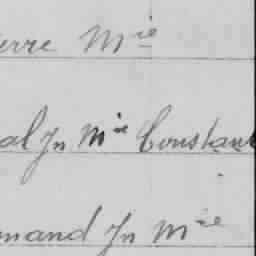 erre Mie
al Jn Mie Constan
mand Jn Mie